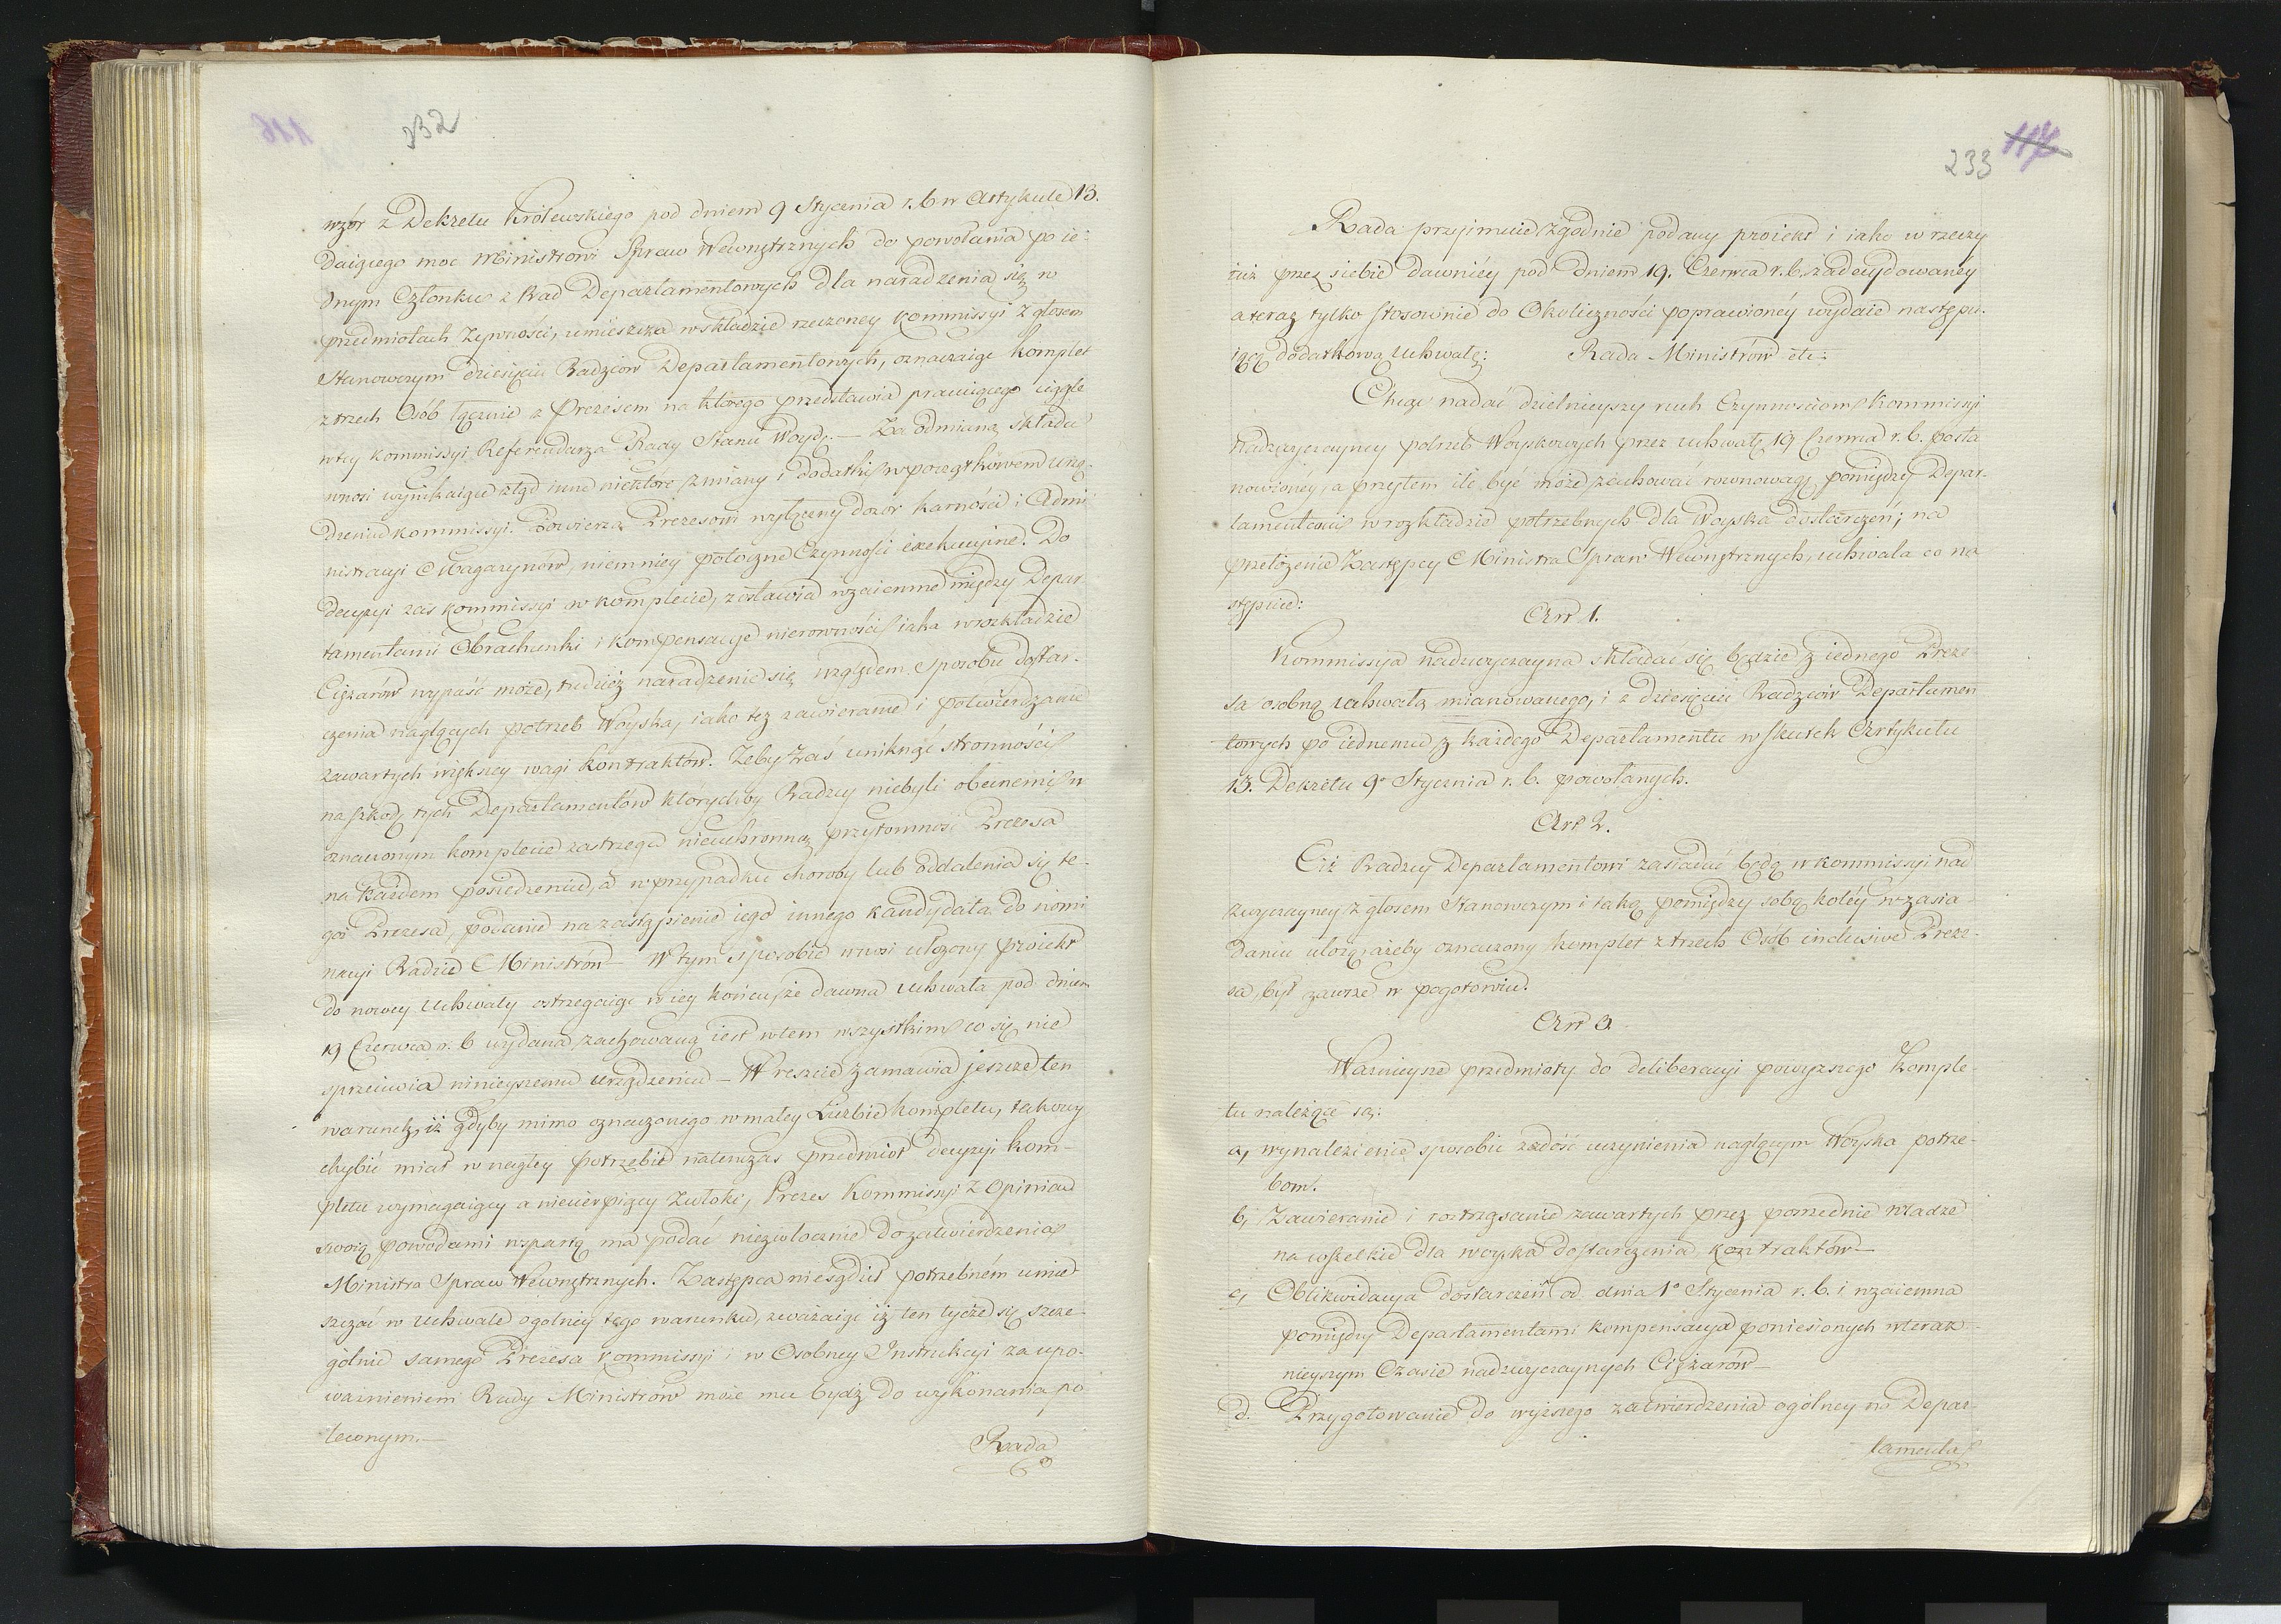 232
wzór z Dekretu Królewskiego pod dniem 9 Stycznia r. b w Artykule 13.
daiącego moc Ministrowi Spraw Wewnętrznych do powołania po ie-
dnym Członku z Rad Departamentowych dla naradzenia się w
przedmiotach Żywności, umieszcza w składzie rzeczoney Kommissyi z głosem
Stanowczym dziesięciu Radzców Departamentowych, oznaczaiąc Komplet
z trzech Osób łącznie z Prezesem na którego przedstawia pracuiącego ciągle
w tey Kommissyi Referendarza Rady Stanu Woydę. — Za odmianą składu
wnosi wynikaiące ztąd inne niektóre zmiany i dodatki w początkowem urzą-
dzeniu Kommissyi. Powierza Prezesowi wyłączny dozór karności i Admi
nistracyi Magazynów, niemniey potoczne Czynności exekucyine. Do
decyzyi zas Kommissyi w komplecie, zostawia wzaiemne między Depar
tamentami Obrachunki i kompensacye nierowności iaka w rozkładzie
Ciężarów wypaść może, tudzież naradzenie się względem sposobu dostar-
czenia naglących potrzeb Woyska, iako też zawieranie i potwierdzanie
zawartych większey wagi kontraktów. Żeby zaś uniknąć stronności
na szkodę tych Departamentów których by Radzcy niebyli obecnemi w
oznaczonym komplecie zastrzega nieuchronną przytomność Prezesa
na każdem posiedzeniu, a w przypadku choroby lub oddalenia się te-
goż Prezesa, podanie na zastąpienie iego innego kandydata do nomi
nacyi Radzie Ministrów — W tym sposobie wnosi ułożony proiekt
do nowey Uchwały ostrzegaiąc w iey końcu, że dawna Uchwała pod dniem
19 Czerwca r. b wydana zachowaną iest w tem wszystkim co się nie
sprzeciwia ninieyszemu urządzeniu — Wreszcie zamawia jeszcze ten
warunek, iż gdyby mimo oznaczonego w małey Liczbie kompletu, takowy
chybić miał w nagłey potrzebie natenczas przedmiot decyzyi kom-
pletu wymagaiący a niecierpiący zwłoki, Prezes Kommissyi z Opinią
swoią powodami wspartą ma podać niezwłocznie do zatwierdzenia
Ministra Spraw Wewnętrznych. Zastępca niesądził potrzebném umie
szczać w Uchwale ogólney tego warunku, zważaiąc iż ten tycze się szcze-
gólnie samego Prezesa Kommissyi i w Osobney Instrukcyi za upo-
ważnieniem Rady Ministrów może mu bydź do wykonania po
leconym. —
Rada
233 117
Rada przyjmuie zgodnie podany proiekt i iako w rzeczy
iuż przez siebie dawniéy pod dniem 19. Czerwca r. b. zadecydowaney
a teraz tylko stosownie do Okoliczności poprawionéy wydaie następu-
iącą dodatkową Uchwałę: Rada Ministrów etc:
Chcąc nadać dzielnieyszy ruch Czynnościom Kommissyi
Nadzwyczayney potrzeb Woyskowych przez Uchwałę 19 Czerwca r. b. posta
nowioney, a przytem ile być może zachować rownowagę pomiędzy Depar-
tamentami w rozkładzie potrzebnych dla Woyska dostarczeń; na
przełożenie Zastępcy Ministra Spraw Wewnętrznych, uchwala co na
stępuie:
Art 1.
Kommissyia nadzwyczayna składać się będzie z iednego Preze-
sa osobną uchwałą mianowanego, i z dziesięciu Radzców Departamen
towych po iednemu z każdego Departamentu w skutek Artykułu
13. Dekretu 9º Stycznia r. b. powołanych.
Art 2.
Ciż Radzcy Departamentowi zasiadać będą w kommissyi nad
zwyczayney z głosem Stanowczym i taką pomiędzy sobą koléy w zasia-
daniu ułożą, ażeby oznaczony komplet z trzech Osób inclusive Preze-
sa, był zawsze w pogotowiu.
Art 3.
Ważnieysze przedmioty do deliberacyi powyższego Komple-
tu należące są:
a, wynalezienie sposobu zadość uczynienia naglącym Woyska potrze-
bom.
b, Zawieranie i roztrząsanie zawartych przez poprzednie władze
na wszelkie dla woyska dostarczenia kontraktów —
c, Oblikwidacya dostarczeń od dnia 1º Stycznia r. b. i wzaiemna
pomiędzy Departamentami kompensacya poniesionych w teraz-
nieyszym Czasie nadzwyczaynych Ciężarów —
d. Przygotowanie do wyższego zatwierdzenia ogólney na Depar-
tamenta